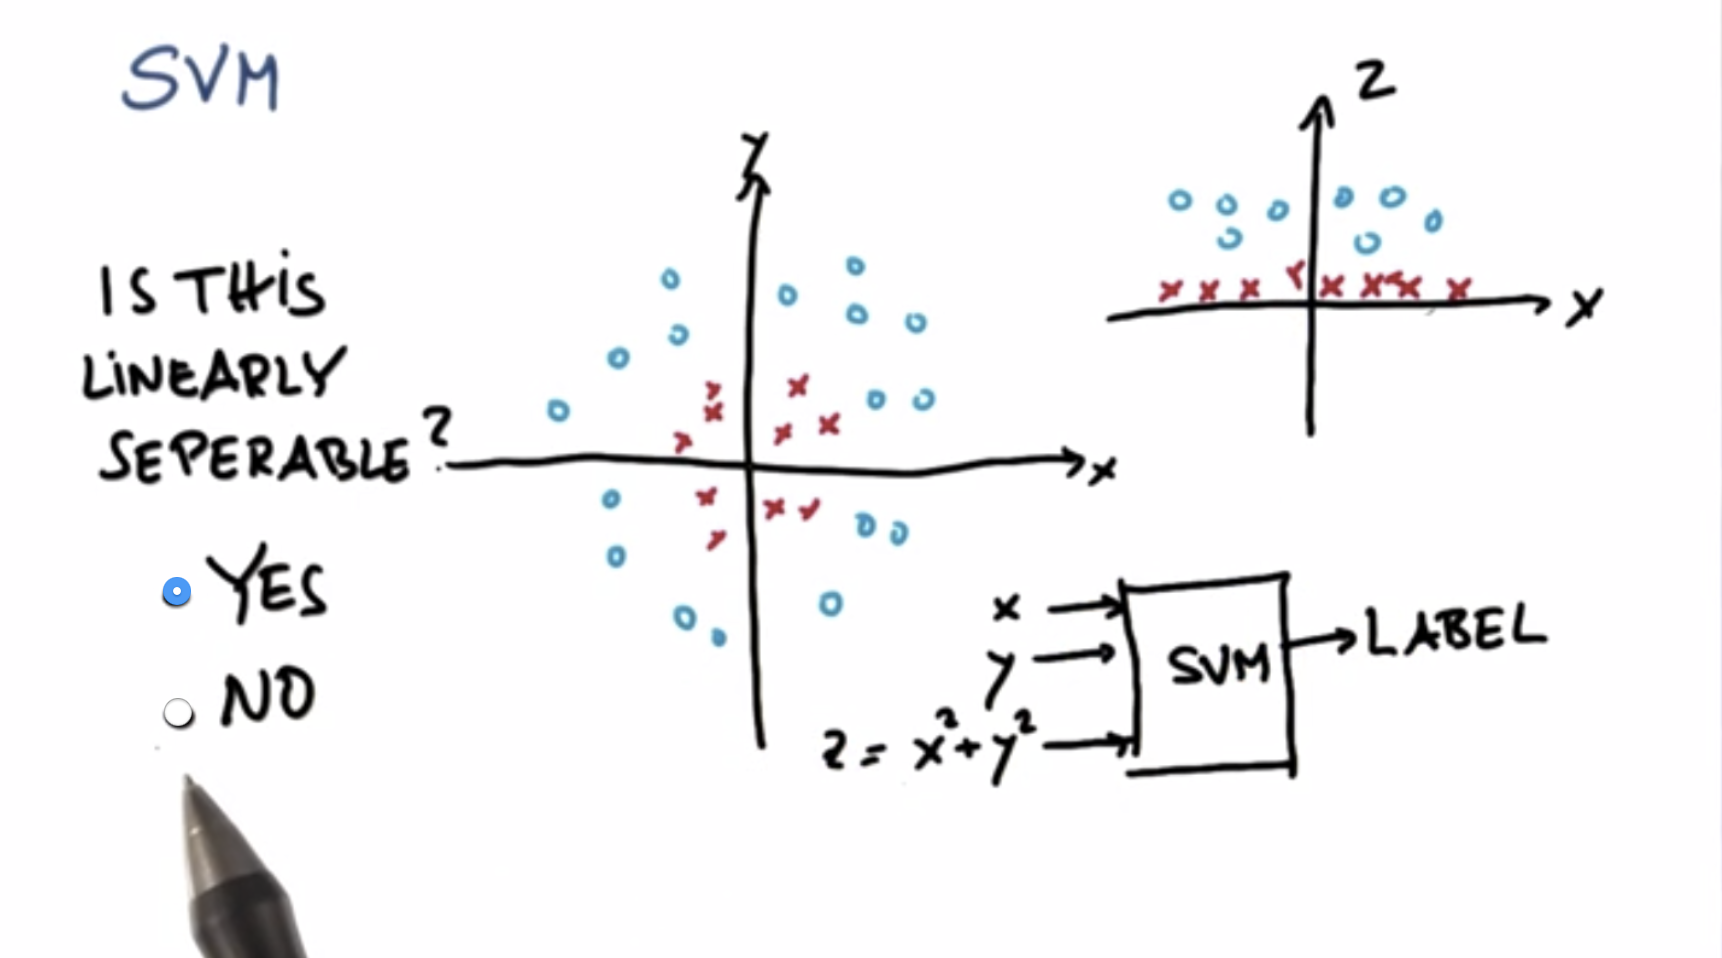 SVM
IS THIS
LINEARLY
SEPERABLE?
YES
NO
y
x
z
x
x
y
z = x² + y²
SVM
LABEL